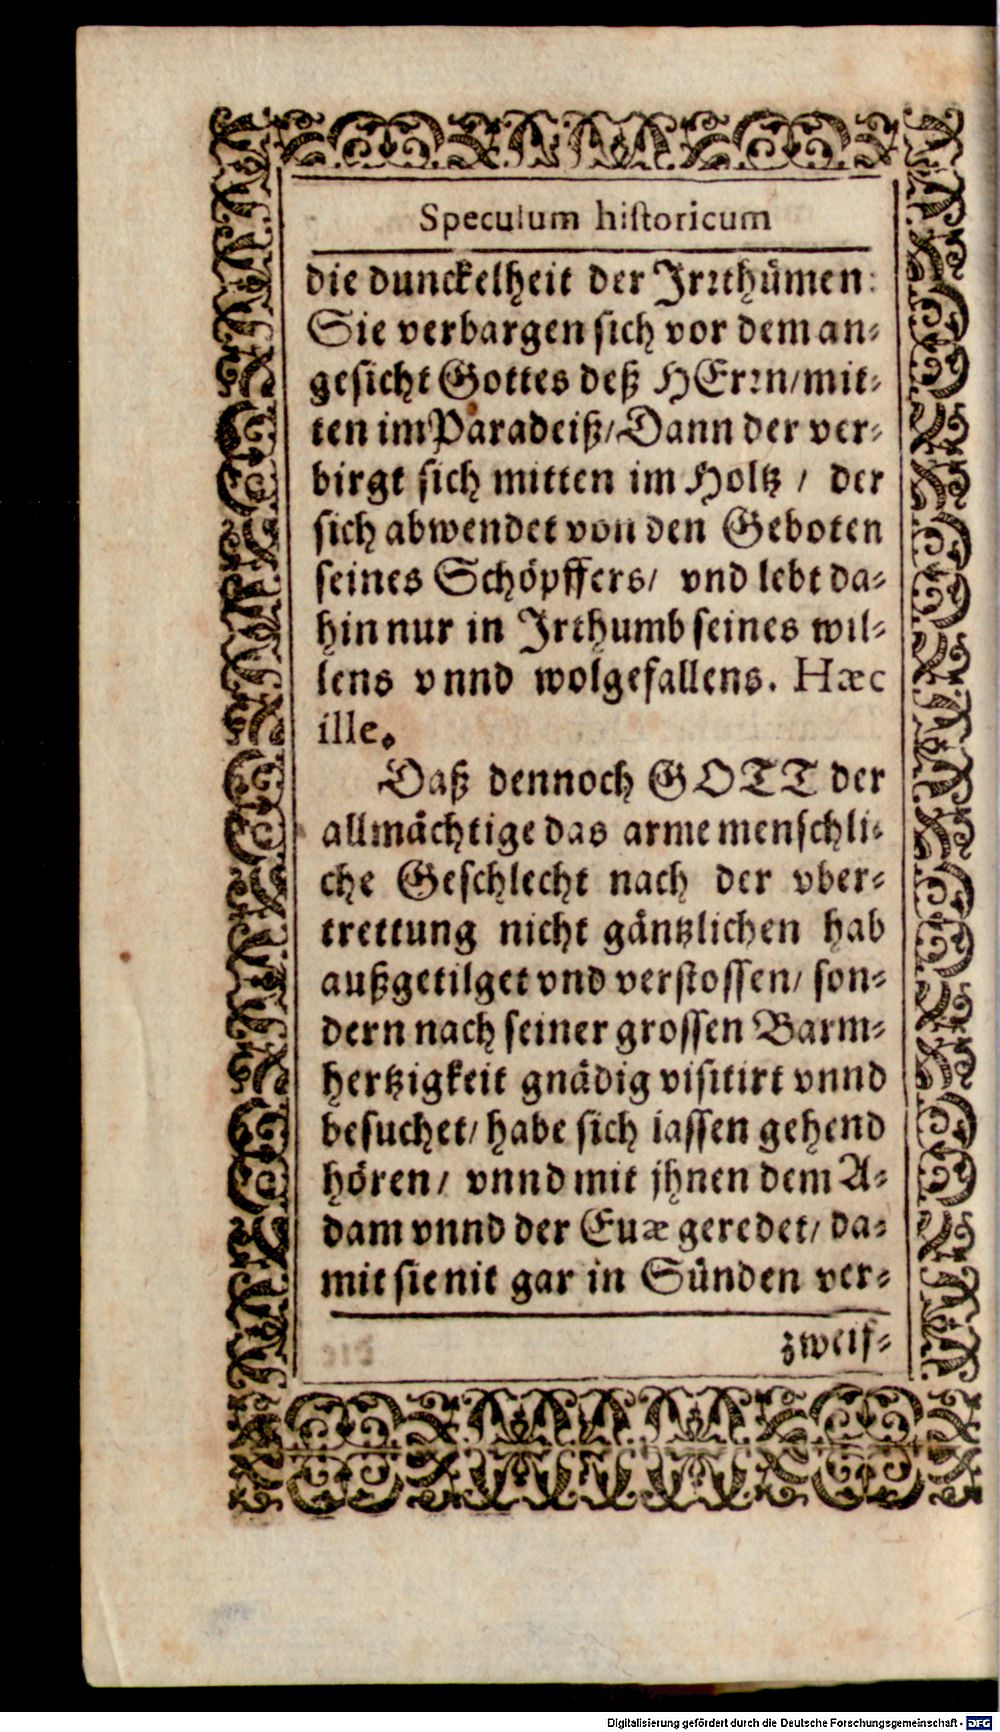 Speculum historicum
die dunckelheit der Jrꝛthümen:
Sie verbargen sich vor dem an-
gesicht Gottes deß HErꝛn/mit-
ten im Paradeiß/Dann der ver-
birgt sich mitten im Holtz / der
sich abwendet von den Geboten
seines Schöpffers/ vnd lebt da-
hin nur in Jrthumb seines wil-
lens vnnd wolgefallens. Hæc
ille.
Daß dennoch GOTT der
allmächtige das arme menschli-
che Geschlecht nach der vber-
trettung nicht gäntzlichen hab
außgetilget vnd verstossen/ son-
dern nach seiner grossen Barm-
hertzigkeit gnädig visitirt vnnd
besuchet/ habe sich lassen gehend
hören/ vnnd mit jhnen dem A-
dam vnnd der Euæ geredet/ da-
mit sie nit gar in Sünden ver-
zweif-
Digitalisierung gefördert durch die Deutsche Forschungsgemeinschaft - DFG